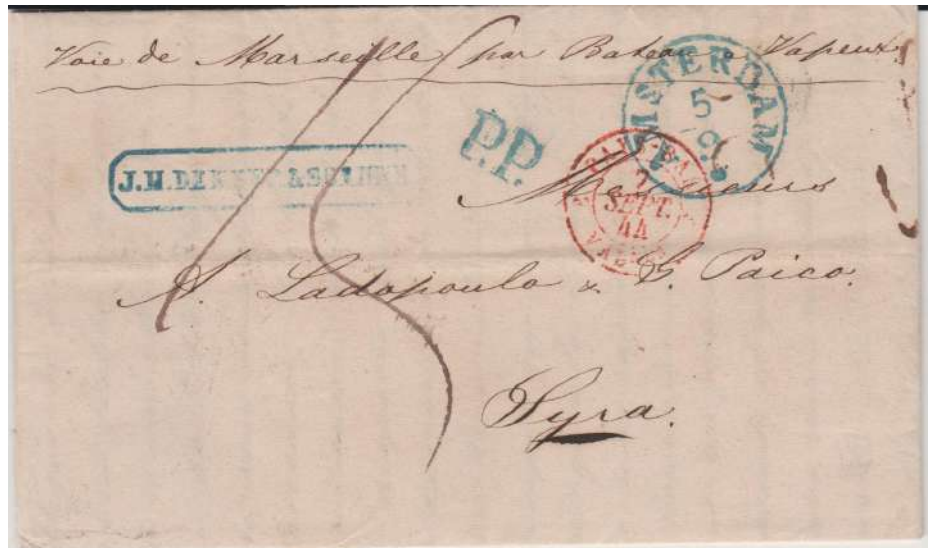 Voie de Marseille par Bateau à Vapeur
AMSTERDAM
5
9
P.P.
J.H.
PAYS-BAS
7
SEPT.
44
Messieurs
A. Ladopoulo & G. Paico.
Syra.